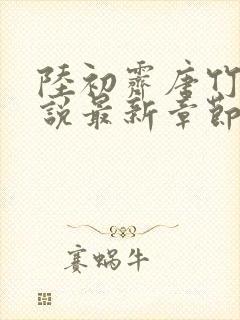 陸初霽唐竹
說最新章節
賽蝸牛